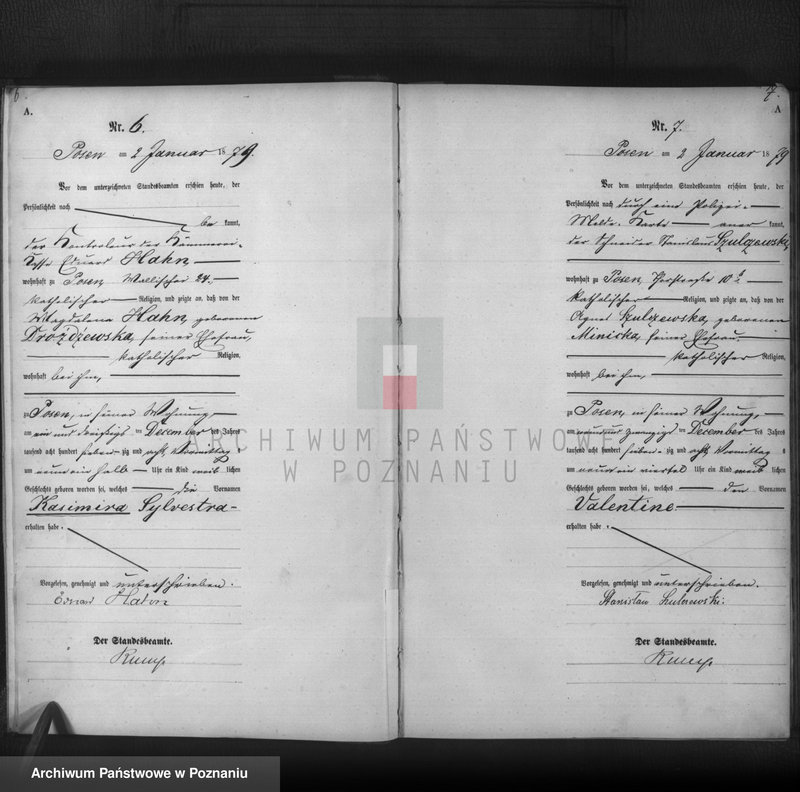 6
A.
Nr. 6.
Posen am 2 Januar 1879.
Vor dem unterzeichneten Standesbeamten erschien heute, der
Persönlichkeit nach
bekannt,
der Kontroleur der Kämmerei-
Kasse Eduard Hahn
wohnhaft zu Posen Wallischei 24.
katholischer Religion, und zeigte an, daß von der
Magdalena Hahn, geborenen
Drożdżewska, seiner Ehefrau,
katholischer Religion,
wohnhaft bei ihm,
zu Posen, in seiner Wohnung,
am ein und dreißigsten December des Jahres
tausend acht hundert siebenzig und acht Vormittag
um neun ein halb Uhr ein Kind weiblichen
Geschlechts geboren worden sei, welches die Vornamen
Kasimira Sylvestra
erhalten habe.
Vorgelesen, genehmigt und unterschrieben.
Eduard Hahn
Der Standesbeamte.
7.
A
Nr. 7.
Posen am 2 Januar 1879
Vor dem unterzeichneten Standesbeamten erschien heute, der
Persönlichkeit nach durch eine Polizei-
Melde-Karte anerkannt,
der Schneider Stanislaus Szulczewski
wohnhaft zu Posen, 10
katholischer Religion, und zeigte an, daß von der
Agnes Szulczewska, geborenen
Minicka, seiner Ehefrau
katholischer Religion,
wohnhaft bei ihm,
zu Posen, in seiner Wohnung,
am neun und zwanzigsten December des Jahres
tausend acht hundert siebenzig und acht Vormittag
um neun ein viertel Uhr ein Kind weiblichen
Geschlechts geboren worden sei, welches den Vornamen
Valentine
erhalten habe.
Vorgelesen, genehmigt und unterschrieben.
Stanisław Szulczewski.
Der Standesbeamte.
ARCHIWUM PAŃSTWOWE
W POZNANIU
Archiwum Państwowe w Poznaniu